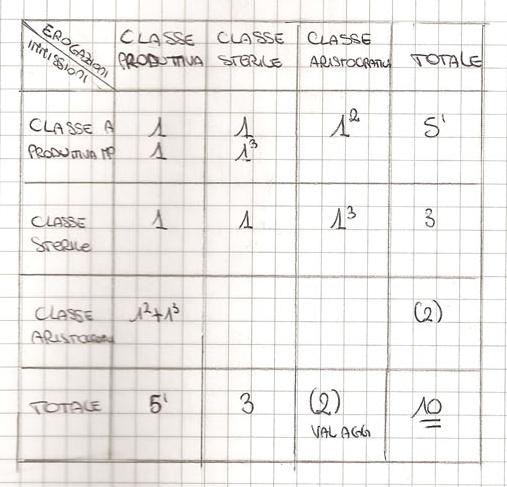 EROGAZIONI
IMMISSIONI
CLASSE PRODUTTIVA
CLASSE STERILE
CLASSE ARISTOCRATICA
TOTALE
CLASSE A 1 1 1² 5'
PRODUTTIVA MP 1 1³
CLASSE STERILE 1 1 1³ 3
CLASSE 1²+1³ (2)
TOTALE 5' 3 (2) 10
VAL AGG